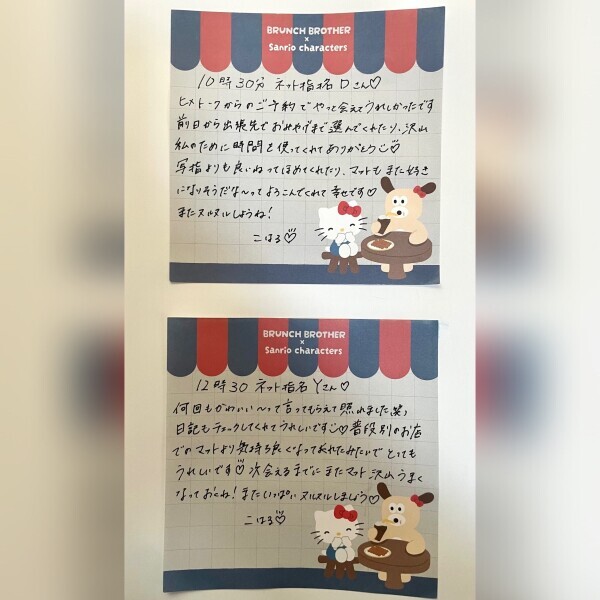 BRUNCH BROTHER
×
Sanrio characters
10時30分 ネット指名 Dさん♡
ヒメトークからのご予約でやっと会えてうれしかったです
前日から出張先でおみやげまで選んでくれたり、沢山
私のために時間を使ってくれてありがとう
写指よりも良いねってほめてくれたり、マットもまた好き
になりそうだな〜ってよろこんでくれて幸せです♡
またヌルヌルしようね!
こはる♡
BRUNCH BROTHER
×
Sanrio characters
12時30 ネット指名 Yさん♡
何回もかわいい〜って言ってもらえて照れました笑、
日記もチェックしてくれてうれしいです♡普段別のお店
でのマットより気持ち良くなってくれたみたいでとっても
うれしいです♡次会えるまでにまたマット沢山うまく
なっておくね!またいっぱいヌルヌルしましょう♡
こはる♡